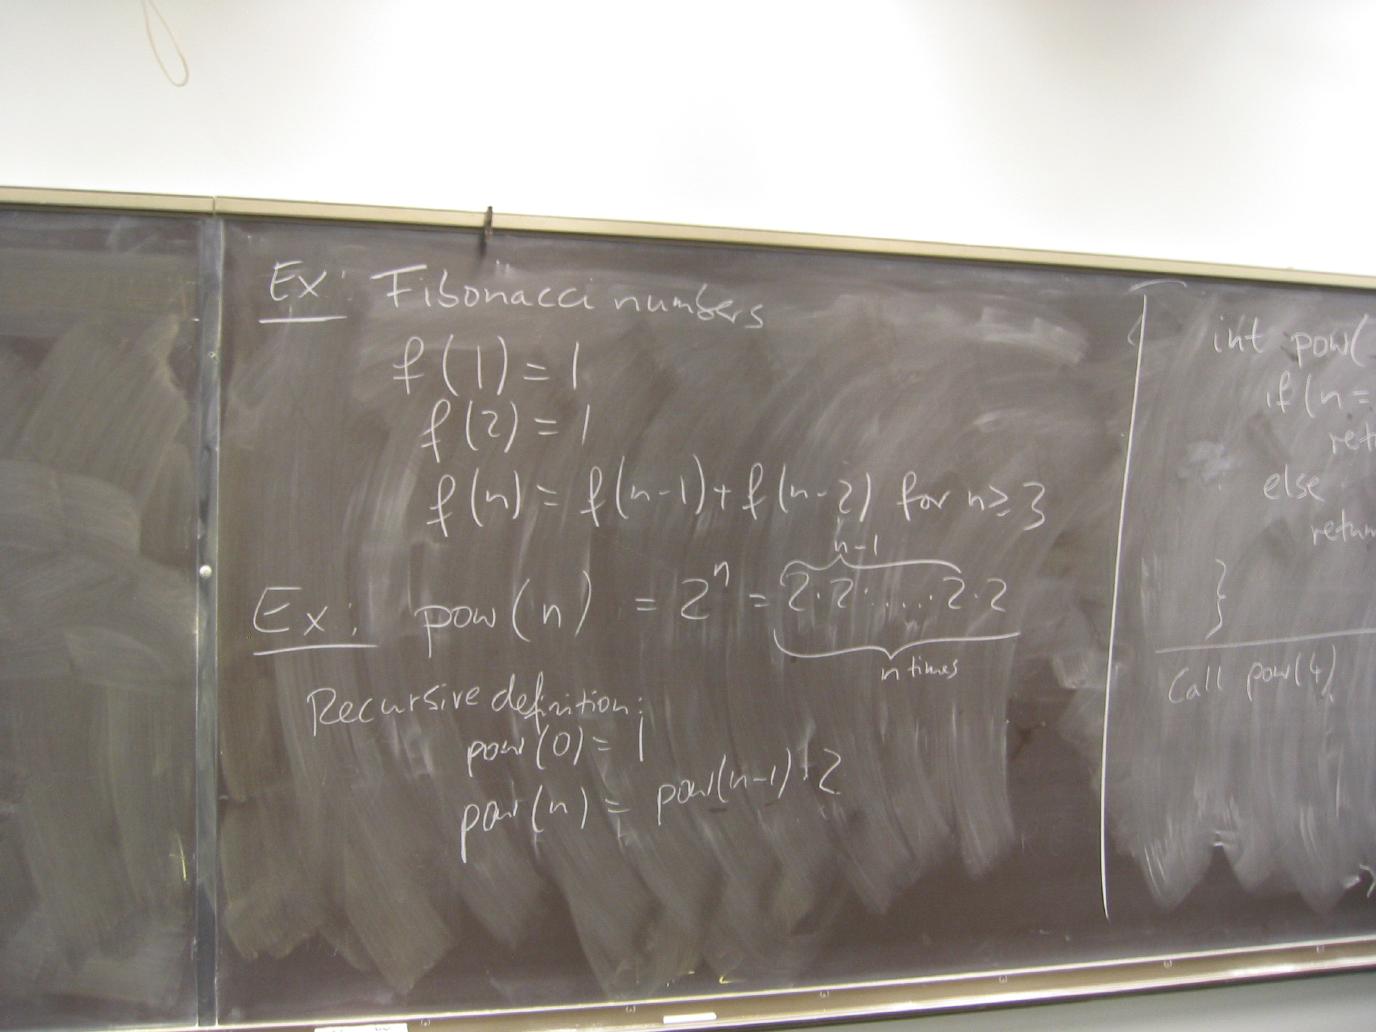 Ex: Fibonacci numbers
f(1) = 1
f(2) = 1
f(n) = f(n-1) + f(n-2) for n ≥ 3
n-1
Ex: pow(n) = 2^n = 2·2·....·2·2
n times
Recursive definition:
pow(0) = 1
pow(n) = pow(n-1)·2
int pow(
if (n =
retu
else
return
}
Call pow(4)